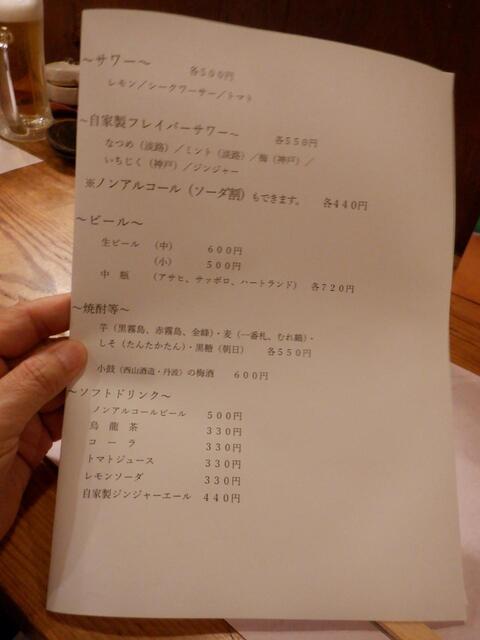 ～サワー～　各500円
レモン／シークワーサー／トマト
～自家製フレイバーサワー～　各550円
なつめ（淡路）／ミント（淡路）／梅（神戸）／
いちじく（神戸）／ジンジャー
※ノンアルコール（ソーダ割）もできます。　各440円
～ビール～
生ビール　（中）　600円
（小）　500円
中　瓶　（アサヒ、サッポロ、ハートランド）　各720円
～焼酎等～
芋（黒霧島、赤霧島、金峰）・麦（一番札、むれ鶴）・
しそ（たんたかたん）・黒糖（朝日）　各550円
小鼓（西山酒造・丹波）の梅酒　600円
～ソフトドリンク～
ノンアルコールビール　500円
烏　龍　茶　330円
コ　ー　ラ　330円
トマトジュース　330円
レモンソーダ　330円
自家製ジンジャーエール　440円